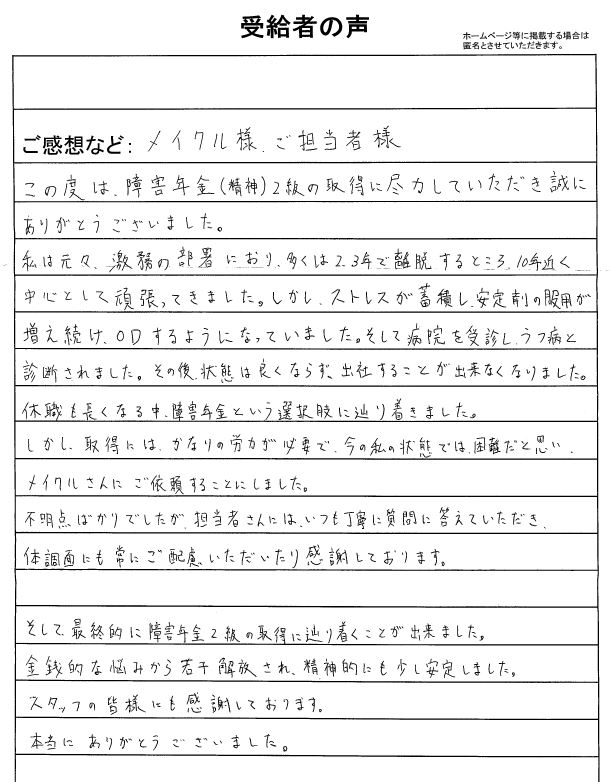 受給者の声
ホームページ等に掲載する場合は
匿名とさせていただきます。
ご感想など: メイクル様、ご担当者様
この度は、障害年金(精神)2級の取得に尽力していただき誠に
ありがとうございました。
私は元々、激務の部署におり、多くは2、3年で離脱するところ、10年近く
中心として頑張ってきました。しかし、ストレスが蓄積し、安定剤の服用が
増え続け、ODするようになっていました。そして病院を受診し、うつ病と
診断されました。その後、状態は良くならず、出社することが出来なくなりました。
休職も長くなる中、障害年金という選択肢に辿り着きました。
しかし、取得には、かなりの労力が必要で、今の私の状態では、困難だと思い、
メイクルさんにご依頼することにしました。
不明点ばかりでしたが、担当者さんには、いつも丁寧に質問に答えていただき、
体調面にも常にご配慮いただいたり感謝しております。
そして、最終的に障害年金2級の取得に辿り着くことが出来ました。
金銭的な悩みから若干解放され、精神的にも少し安定しました。
スタッフの皆様にも感謝しております。
本当にありがとうございました。